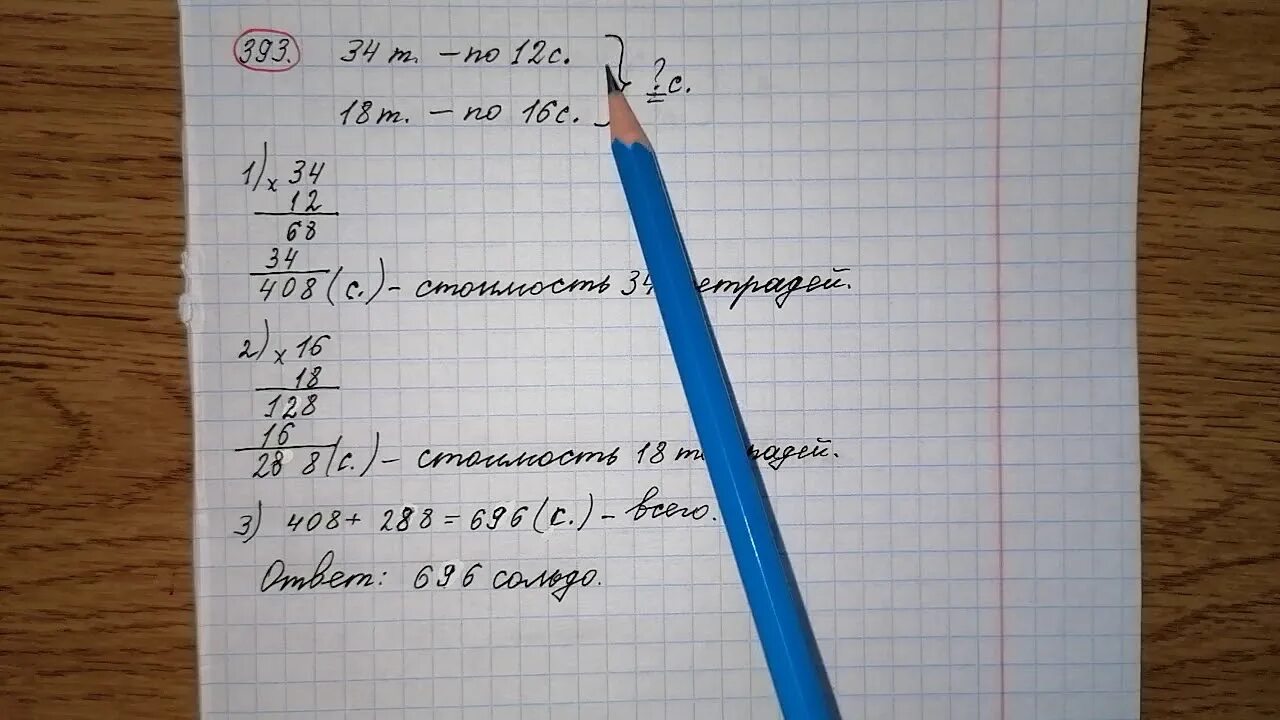 393. 34 т. – по 12с.
18т. – по 16с.
? с.
1) х 34
12
68
34
408 (с.) – стоимость 34 тетрадей.
2) х 16
18
128
16
288 (с.) – стоимость 18 тетрадей.
3) 408 + 288 = 696 (с.) – всего.
Ответ: 696 сольдо.